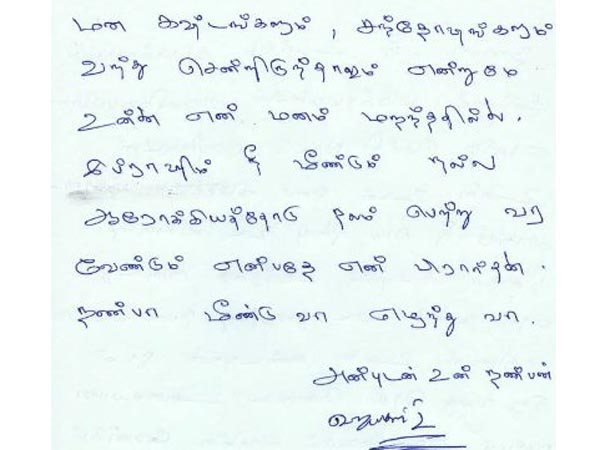 மன கஷ்டங்களும், சந்தோஷங்களும்
வந்து சென்றிருந்தாலும் என்றுமே
உன்னை என் மனம் மறந்ததில்லை.
இப்ராஹிம் நீ மீண்டும் நல்ல
ஆரோக்கியத்தோடு நலம் பெற்று வர
வேண்டும் என்பதே என் பிரார்த்தனை.
நண்பா மீண்டு வா எழுந்து வா.
அன்புடன் உன் நண்பன்